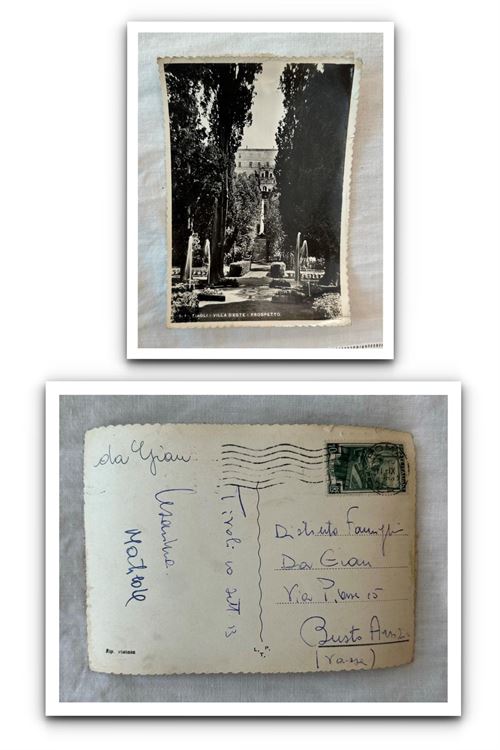 TIVOLI - VILLA D'ESTE - PROSPETTO
da Gian
Cesarina
Matilde
Tivoli 10 Sett 53
Distinta Famiglia
Da Gian
Via Piave 15
Busto Arsizio
(Varese)
Rip. vietata
L. P.
T.